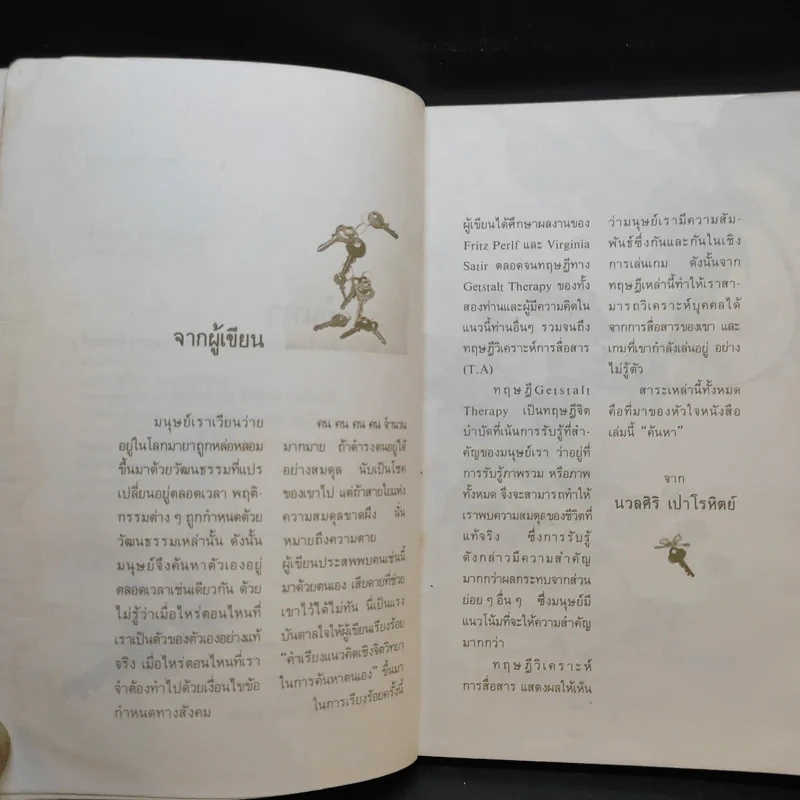 จากผู้เขียน
มนุษย์เราเวียนว่าย
อยู่ในโลกมายาถูกหล่อหลอม
ขึ้นมาด้วยวัฒนธรรมที่แปร
เปลี่ยนอยู่ตลอดเวลา พฤติ-
กรรมต่าง ๆ ถูกกำหนดด้วย
วัฒนธรรมเหล่านั้น ดังนั้น
มนุษย์จึงค้นหาตัวเองอยู่
ตลอดเวลาเช่นเดียวกัน ด้วย
ไม่รู้ว่าเมื่อไหร่ตอนไหนที่
เราเป็นตัวของตัวเองอย่างแท้
จริง เมื่อไหร่ตอนไหนที่เรา
จำต้องทำไปด้วยเงื่อนไขข้อ
กำหนดทางสังคม
คน คน คน คน จำนวน
มากมาย ถ้าดำรงตนอยู่ได้
อย่างสมดุล นับเป็นโชค
ของเขาไป แต่ถ้าสายใยแห่ง
ความสมดุลขาดผึง นั่น
หมายถึงความตาย
ผู้เขียนประสพพบคนเช่นนี้
มาด้วยตนเอง เสียดายที่ช่วย
เขาไว้ได้ไม่ทัน นี่เป็นแรง
บันดาลใจให้ผู้เขียนเรียงร้อย
“คำเรียงแนวคิดเชิงจิตวิทยา
ในการค้นหาตนเอง” ขึ้นมา
ในการเรียงร้อยครั้งนี้
ผู้เขียนได้ศึกษาผลงานของ
Fritz Perlf และ Virginia
Satir ตลอดจนทฤษฎีทาง
Getstalt Therapy ของทั้ง
สองท่านและผู้มีความคิดใน
แนวนี้ท่านอื่นๆ รวมจนถึง
ทฤษฎีวิเคราะห์การสื่อสาร
(T.A)
ทฤษฎีGetstalt
Therapy เป็นทฤษฎีจิต
บำบัดที่เน้นการรับรู้ที่สำ-
คัญของมนุษย์เรา ว่าอยู่ที่
การรับรู้ภาพรวม หรือภาพ
ทั้งหมด จึงจะสามารถทำให้
เราพบความสมดุลของชีวิตที่
แท้จริง ซึ่งการรับรู้
ดังกล่าวมีความสำคัญ
มากกว่าผลกระทบจากส่วน
ย่อย ๆ อื่น ๆ ซึ่งมนุษย์มี
แนวโน้มที่จะให้ความสำคัญ
มากกว่า
ทฤษฎีวิเคราะห์
การสื่อสาร แสดงผลให้เห็น
ว่ามนุษย์เรามีความสัม-
พันธ์ซึ่งกันและกันในเชิง
การเล่นเกม ดังนั้นจาก
ทฤษฎีเหล่านี้ทำให้เราสา-
มารถวิเคราะห์บุคคลได้
จากการสื่อสารของเขา และ
เกมที่เขากำลังเล่นอยู่ อย่าง
ไม่รู้ตัว
สาระเหล่านี้ทั้งหมด
คือที่มาของหัวใจหนังสือ
เล่มนี้ “ค้นหา”
จาก
นวลศิริ เปาโรหิตย์